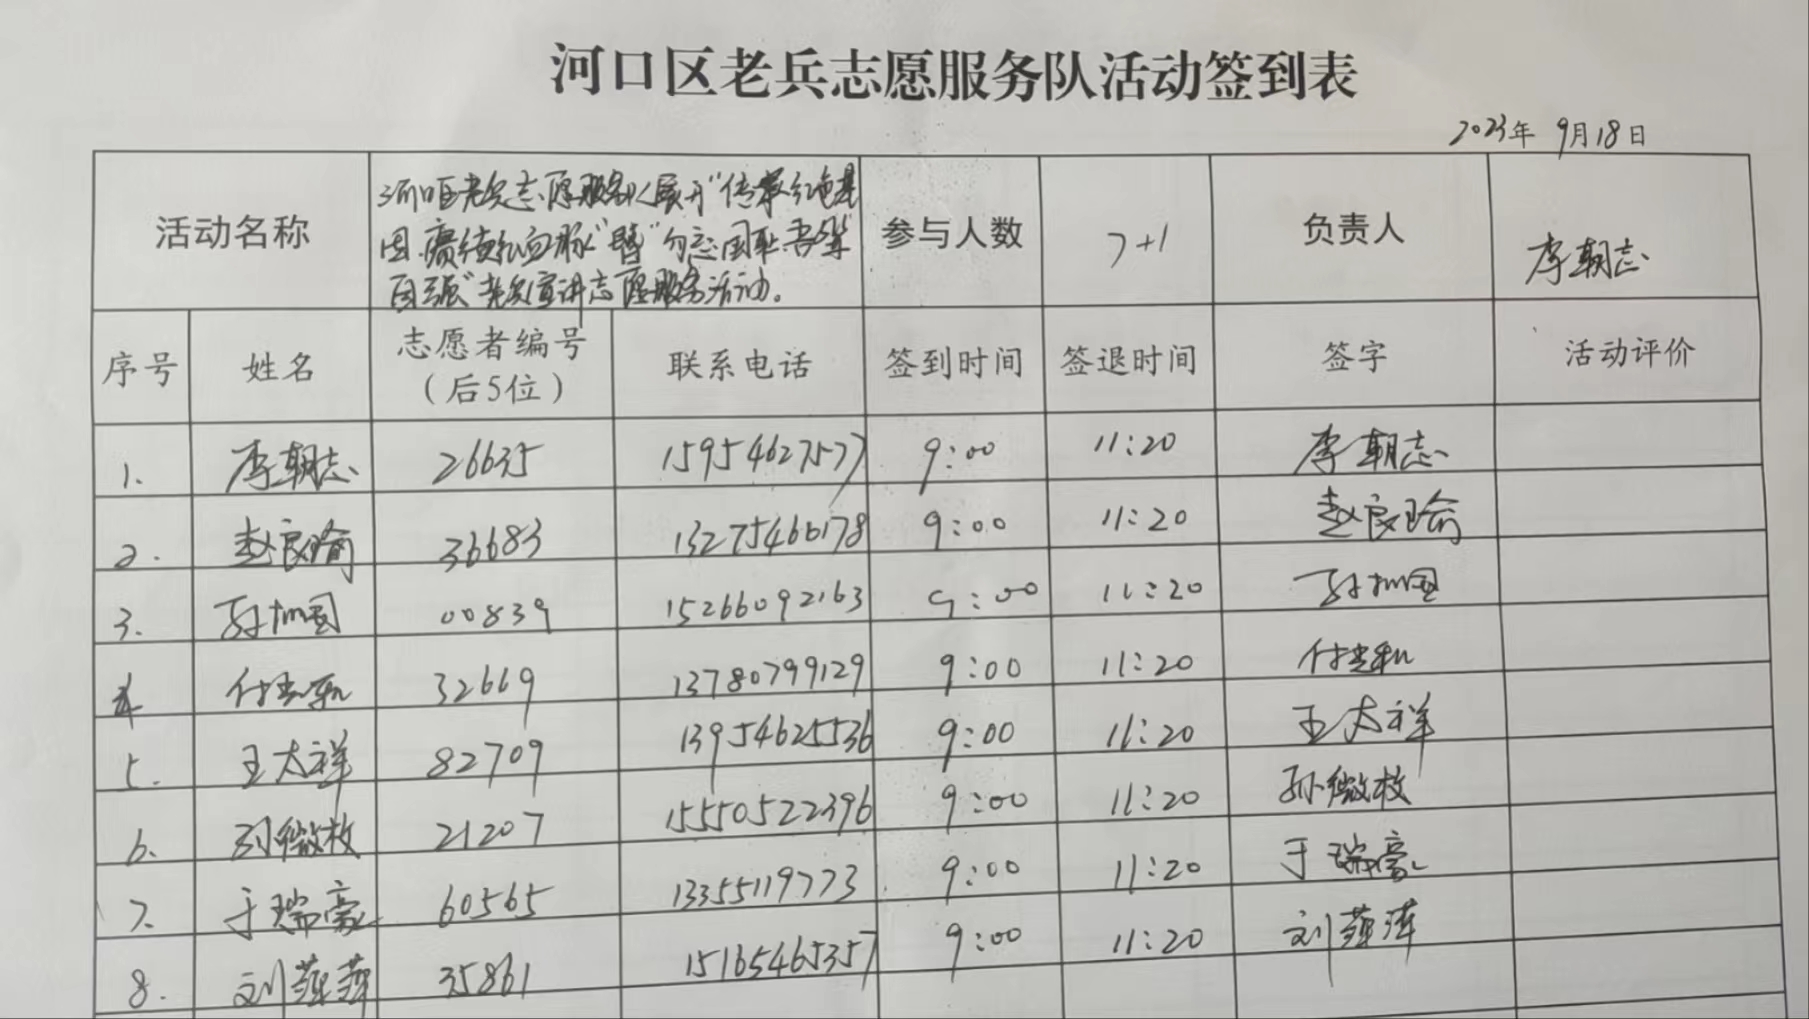 河口区老兵志愿服务队活动签到表
2023年 9月18日
活动名称
河口区老兵志愿服务队开展"传承红色基
因、赓续红色血脉"暨"勿忘国耻、吾辈
自强"老兵宣讲志愿服务活动。
参与人数
7+1
负责人
李朝志
序号 姓名 志愿者编号 联系电话 签到时间 签退时间 签字 活动评价
（后5位）
1. 李朝志 26635 15954627577 9:00 11:20 李朝志
2. 赵良瑜 36683 13275466178 9:00 11:20 赵良瑜
3. 国 00839 15266092163 9:00 11:20 国
4. 付 32669 13780799129 9:00 11:20 付
5. 王太祥 82709 13954625536 9:00 11:20 王太祥
6. 孙微枚 21207 15550522396 9:00 11:20 孙微枚
7. 于瑞豪 60565 13355119773 9:00 11:20 于瑞豪
8. 刘萍萍 35861 15165465357 9:00 11:20 刘萍萍